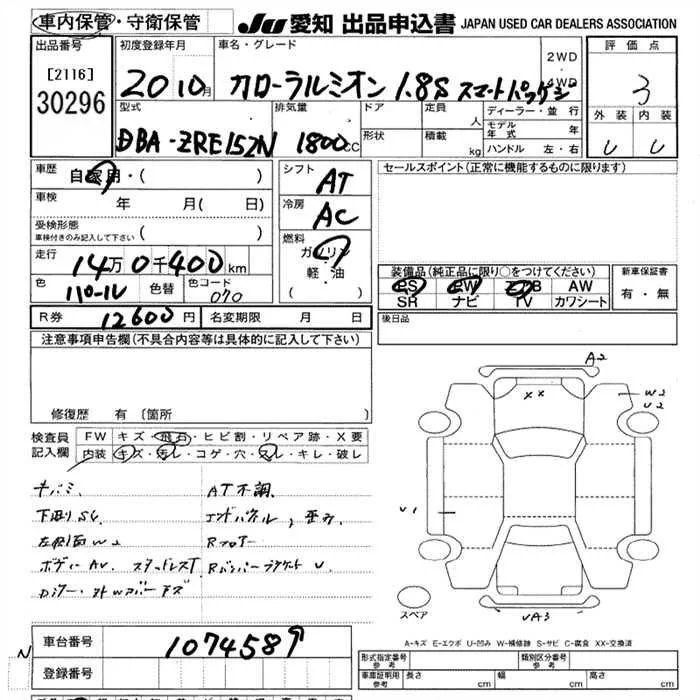 車内保管・守衛保管
JU 愛知 出品申込書 JAPAN USED CAR DEALERS ASSOCIATION
出品番号
[2116]
30296
初度登録年月
20 10月
車名・グレード
カローラルミオン 1.8S スマートパッケージ
2WD
4WD
評価点
3
外装 内装
型式
DBA-ZRE152N
排気量
1800cc
ドア
形状
定員 人
積載 kg
ディーラー・並行
モデル年式 年
ハンドル 左・右
車歴
自家用・( )
車検 年 月( 日)
受検形態
車検付きのみ記入して下さい ( )
走行
14万0千400km
色
パール
色替
色コード
070
シフト
AT
冷房
AC
燃料
ガソリン
軽・油
( )
セールスポイント(正常に機能するものに限ります)
装備品(純正品に限り○をつけてください)
PS PW エアB AW
SR ナビ TV カワシート
新車保証書
有・無
R券 12600円 名変期限 月 日
後日品
注意事項申告欄(不具合内容等は具体的に記入して下さい)
修復歴 有 〔箇所
検査員記入欄
FW キズ・飛石・ヒビ割・リペア跡・X要
内装 キズ・汚レ・コゲ・穴・スレ・キレ・破レ
キバミ
AT不調
左側面W2
A2
XX
W2
U2
U1
UA3
スペア
A-キズ E-エクボ U-凹み W-補修跡 S-サビ C-腐食 XX-交換済
車台番号
登録番号
N
形式指定番号
参考
類別区分番号
参考
車庫証明用
参考
長さ cm
幅 cm
高さ cm